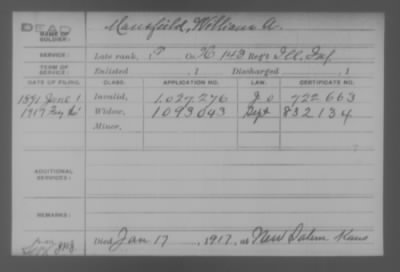 DEAD
NAME OF SOLDIER: Mansfield, William A.
SERVICE: Late rank, P Co. H 143 Reg't Ill. Inf.
TERM OF SERVICE: Enlisted , 1 Discharged , 1
DATE OF FILING. CLASS. APPLICATION NO. LAW. CERTIFICATE NO.
1891 June 1 Invalid, 1.027.276 722663
1917 Widow, 1093043 Sept 832134
Minor,
ADDITIONAL SERVICES:
REMARKS:
Died Jan 17 , 1917, at New Salem Kans